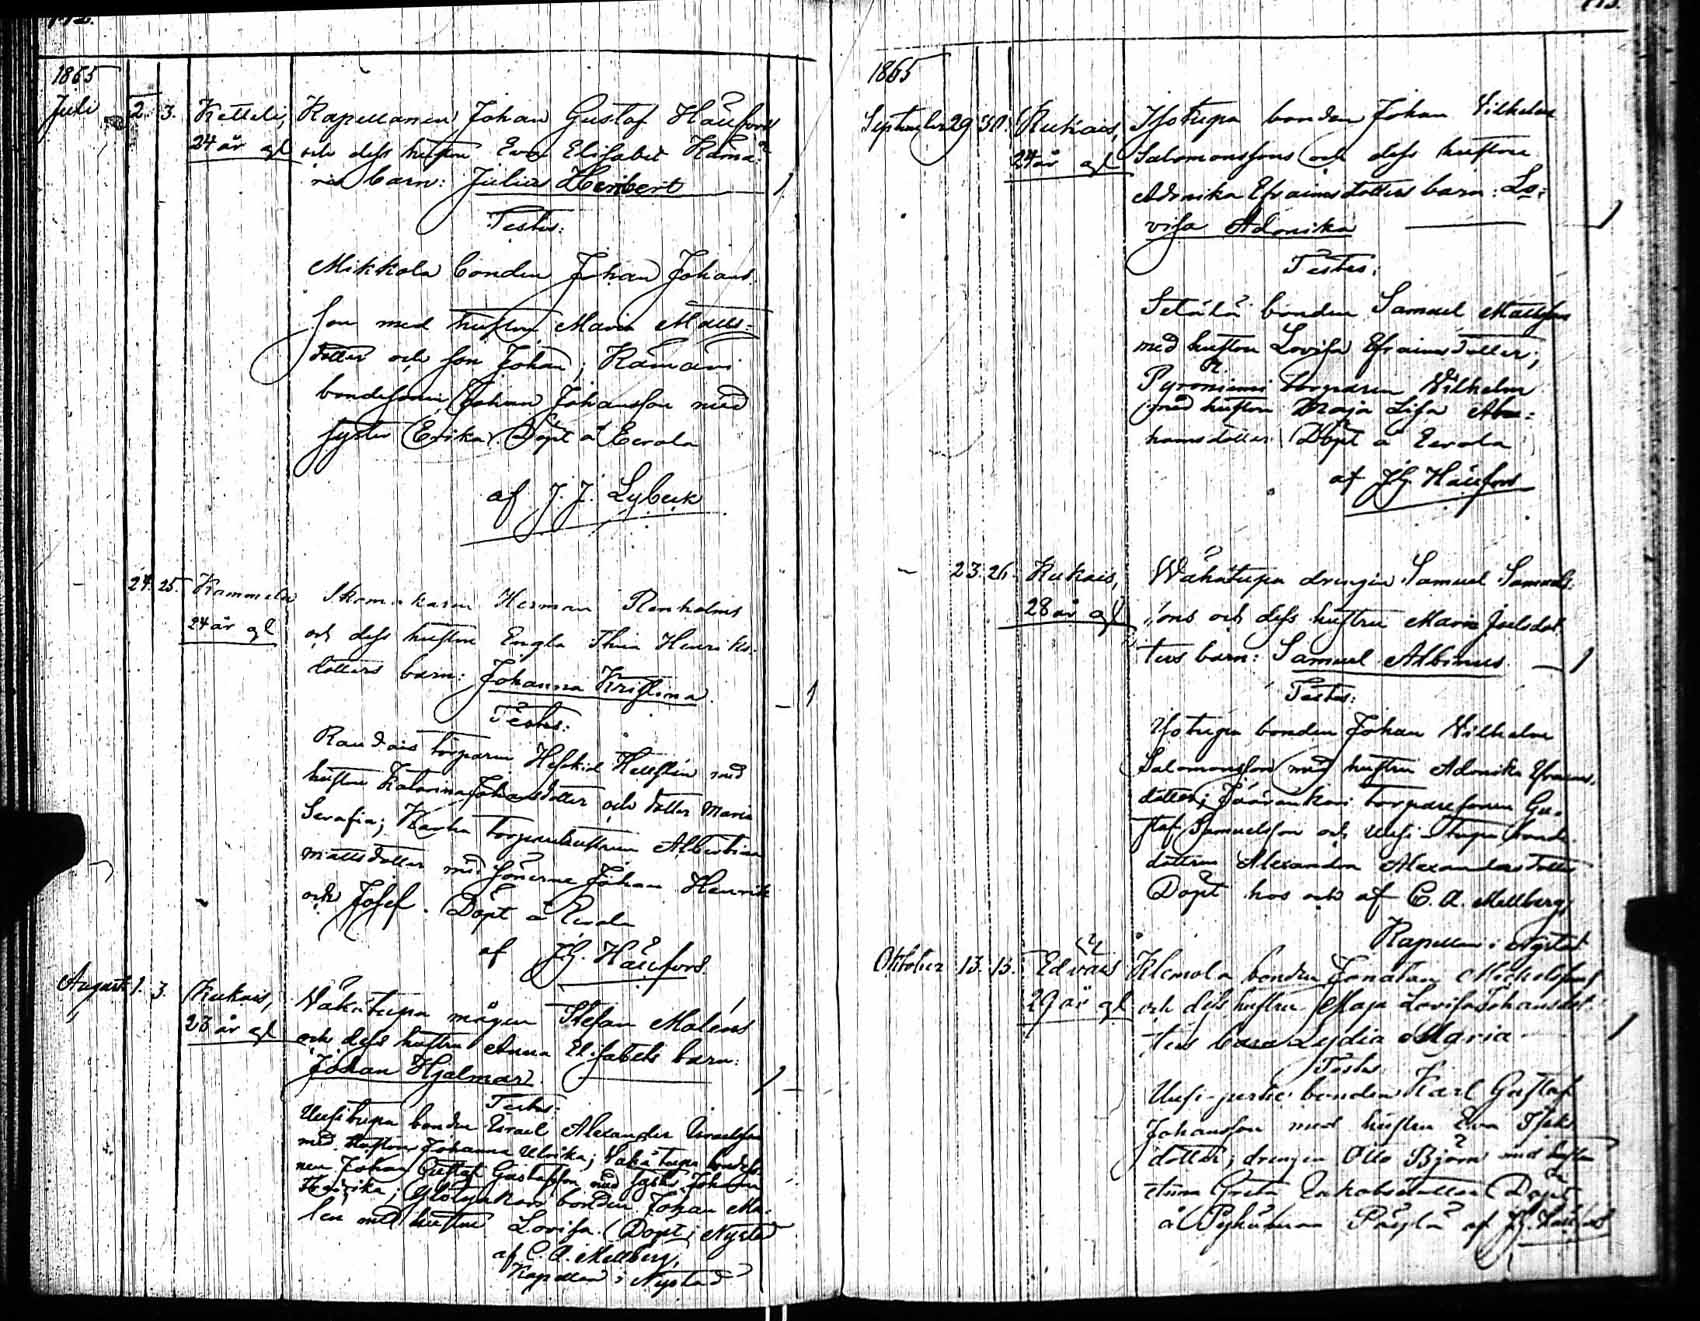 1865
Juli 2. 3. Ketteli, Kapellanen Johan Gustaf Hällfors
24 år gl och dess hustru Eva Elisabet
barn: Julius Heribert 1
Testes:
Mikkola bonden Johan Johans
son med hustru Maria Matts=
dotter och son Johan,
bondesonen Johan Johansson med
syster Erika. Döpt å Eerola
af J. J. Lybeck
24. 25. Kammela Skomakaren Herman Renholms
24 år gl och dess hustru Engla Henriks
dotters barn: Johanna Kristina 1
Testes:
torparen Hellstén med
hustru Katarina Johansdotter och dotter Maria
Serafia; torparehustrun Albertina
Mattsdotter med sönerne Johan Henrik
och Josef. Döpt å
af J.G. Hällfors.
Augusti 1. 3. Kukais, Vähätupa mågen Stefan Maléns
23 år gl och dess hustru Anna Elisabets barn:
Johan Hjalmar 1
Testes:
Uusitupa bonden Israel Alexander Israelsson
med hustru Johanna Ulrika; Vähätupa bondeso
nen Johan Gustaf Gustafsson med syster Johanna
bonden Johan Ma=
lén med hustru Lovisa. Döpt i Nystad
af C. A. Mellberg,
Kapellan i Nystad
1865
September 29 30. Kukais, Isotupa bonden Johan Vilhelm
24 år gl Salomonssons och dess hustru
Adonika Efraimsdotters barn: Lo=
visa Adonika 1
Testes:
Setälä bonden Samuel Mattsson
med hustru Lovisa Efraimsdotter;
torparen Vilhelm
med hustru Maja Lisa Abra=
hamsdotter. Döpt å Eerola
af J.G. Hällfors
23. 26. Kukais, Vähätupa drengen Samuel Samuels
28 år gl sons och dess hustru Maria Joelsdot
ters barn: Samuel Albinus 1
Testes:
Isotupa bonden Johan Vilhelm
Salomonsson med hustru Adonika Efraims
dotter; torparesonen Gu=
staf Samuelsson och Uusi-tupa bonde
dottern Alexandra Alexandersdotter
Döpt hos och af C. A. Mellberg,
Kapellan i Nystad
Oktober 13. 15. Edväis Klemola bonden Jonatan Mickelssons
29 år gl och dess hustru Maja Lovisa Johansdot
ters barn Lydia Maria 1
Testes
bonden Karl Gustaf
Johansson med hustru Eva Isaks
dotter; drengen Otto Björn med hustru
Greta Jakobsdotter. Döpt
å af J.G. Hällfors